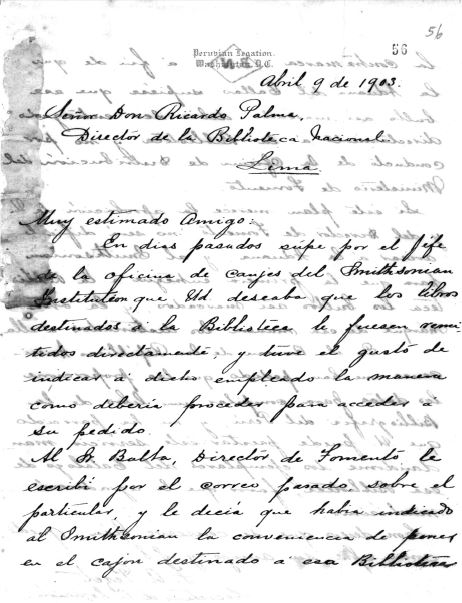 56
56
Peruvian Legation.
Washington, D.C.
Abril 9 de 1903.
Señor Don Ricardo Palma,
Director de la Biblioteca Nacional.
Lima.
Muy estimado Amigo:
En dias pasados supe por el Jefe
de la oficina de canjes del Smithsonian
Institution que Ud deseaba que los libros
destinados á la Biblioteca le fuesen remi-
tidos directamente y tuve el gusto de
indicar á dicho empleado la manera
como deberia proceder para acceder á
su pedido.
Al Sr. Balta, Director de Fomento le
escribí por el correo pasado, sobre el
particular, y le decía que habia indicado
al Smithsonian la conveniencia de poner
en el cajon destinado á esa Biblioteca